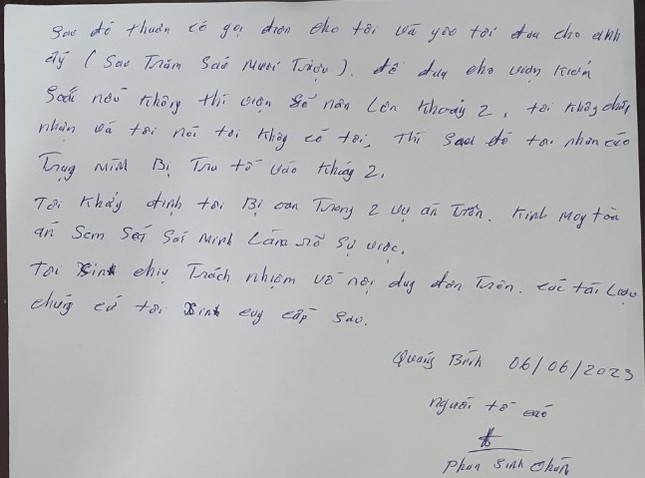 Sao đó thuân có gọi điện cho tôi và yêo tôi đưa cho anh
ấý (Sao Trăm Sáo Mươi Triệu). đê đưa cho viện Kiểm
Soát nếu không thì viện Sẽ nân Lên Khoảy 2, tôi không chấp
nhận và tôi nói tôi không có tội, Thì Sao đó tôi nhận cáo
Trạng mình Bị Truy tố vào Khoảng 2.
Tôi Khẳng định tôi Bị oan Trong 2 vụ án Trên. Kính Mog tòa
án Sem Sét Sái Minh Làm rõ Sự việc.
Tôi Sinh chịu Trách nhiệm về nội dug đơn Trên. các tài Liệu
chứg cứ tôi Sinh cug cấp Sao.
Quảng Bình 06/06/2023
người tố cáo
Phan Sinh